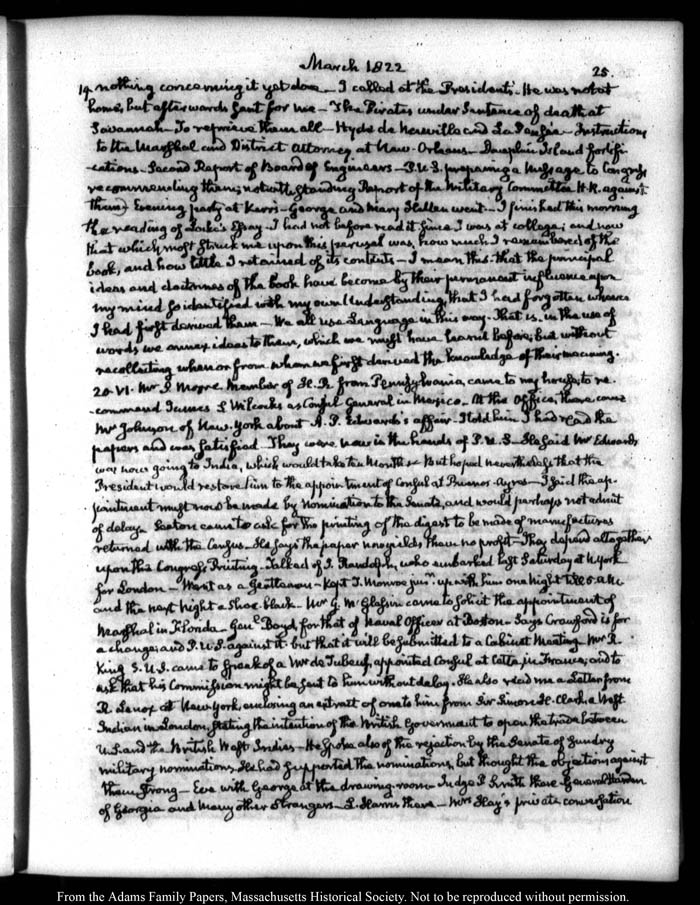 March 1822
25.
19. nothing concerning it yet done — I called at the President's. He was not at
home, but afterwards sent for me — The Pirates under Sentence of death at
Savannah — To reprieve them all — Hyde de Neuville and La Pensée — Instructions
to the Marshal and District Attorney at New-Orleans — Dauphin Island fortifi-
-cations. Second Report of Board of Engineers — P.U.S. preparing a Message to Congress
recommending them; notwithstanding Report of the Military Committee H.R. against
them. Evening party at Kerr's — George and Mary Hellen went — I finished this morning
the reading of Locke's Essay — I had not before read it since I was at college; and now
that which most struck me upon this perusal was, how much I remembered of the
book, and how little I retained of its contents — I mean this: that the principal
ideas and doctrines of the book have become by their permanent influence upon
my mind so identified with my own Understanding, that I had forgotten whence
I had first derived them — We all use Language in this way. That is in the use of
words we annex ideas to them, which we must have learnt before; but without
recollecting when or from whom we first derived the knowledge of their meaning.
20. VI. Mr. S. Moore Member of H.R. from Pennsylvania, came to my house, to re-
-commend James S Wilcocks as Consul General in Mexico. At the Office, there came
Mr Johnson of New-York about A. P. Edwards's affair — I told him I had read the
papers and was satisfied — They were now in the hands of P.U.S — He said Mr Edwards
was now going to India, which would take ten Months — But hoped nevertheless that the
President would restore him to the appointment of Consul at Buenos-Ayres — I said the ap-
-pointment must now be made by nomination to the Senate, and would perhaps not admit
of delay. Seaton came to ask for the printing of the digest to be made of manufactures
returned with the Census. He says the paper now yields them no profit — They depend altogether
upon the Congress Printing — Talked of J. Randolph, who embarked last Saturday at N. York
for London — Went as a Gentleman — Kept J. Monroe junr. up with him one Night till 5. A.M.
and the next Night a Shoe-black. Mr G. McGlassin came to solicit the appointment of
Marshal in Florida — Genl. Boyd, for that of Naval Officer at Boston — Says Crawford is for
a change; and P.U.S. against it — but that it will be submitted to a Cabinet Meeting — Mr R.
King S.U.S. came to speak of a Mr de Tubeuf, appointed Consul at Cette, in France; and to
ask that his Commission might be sent to him without delay. He also read me a Letter from
R. Lenox at New York, enclosing an extract of one to him from Sir Simon H. Clarke a West
Indian in London, stating the intention of the British Government to open the trade between
U.S. and the British West Indies — He spoke also of the rejection by the Senate of sundry
military nominations. He had supported the nominations, but thought the objections against
them strong — Eve with George at the drawing-room — Judge S. Smith there — General Harden
of Georgia and many other Strangers — L. Harris there — Mrs Hay's private conversation
From the Adams Family Papers, Massachusetts Historical Society. Not to be reproduced without permission.